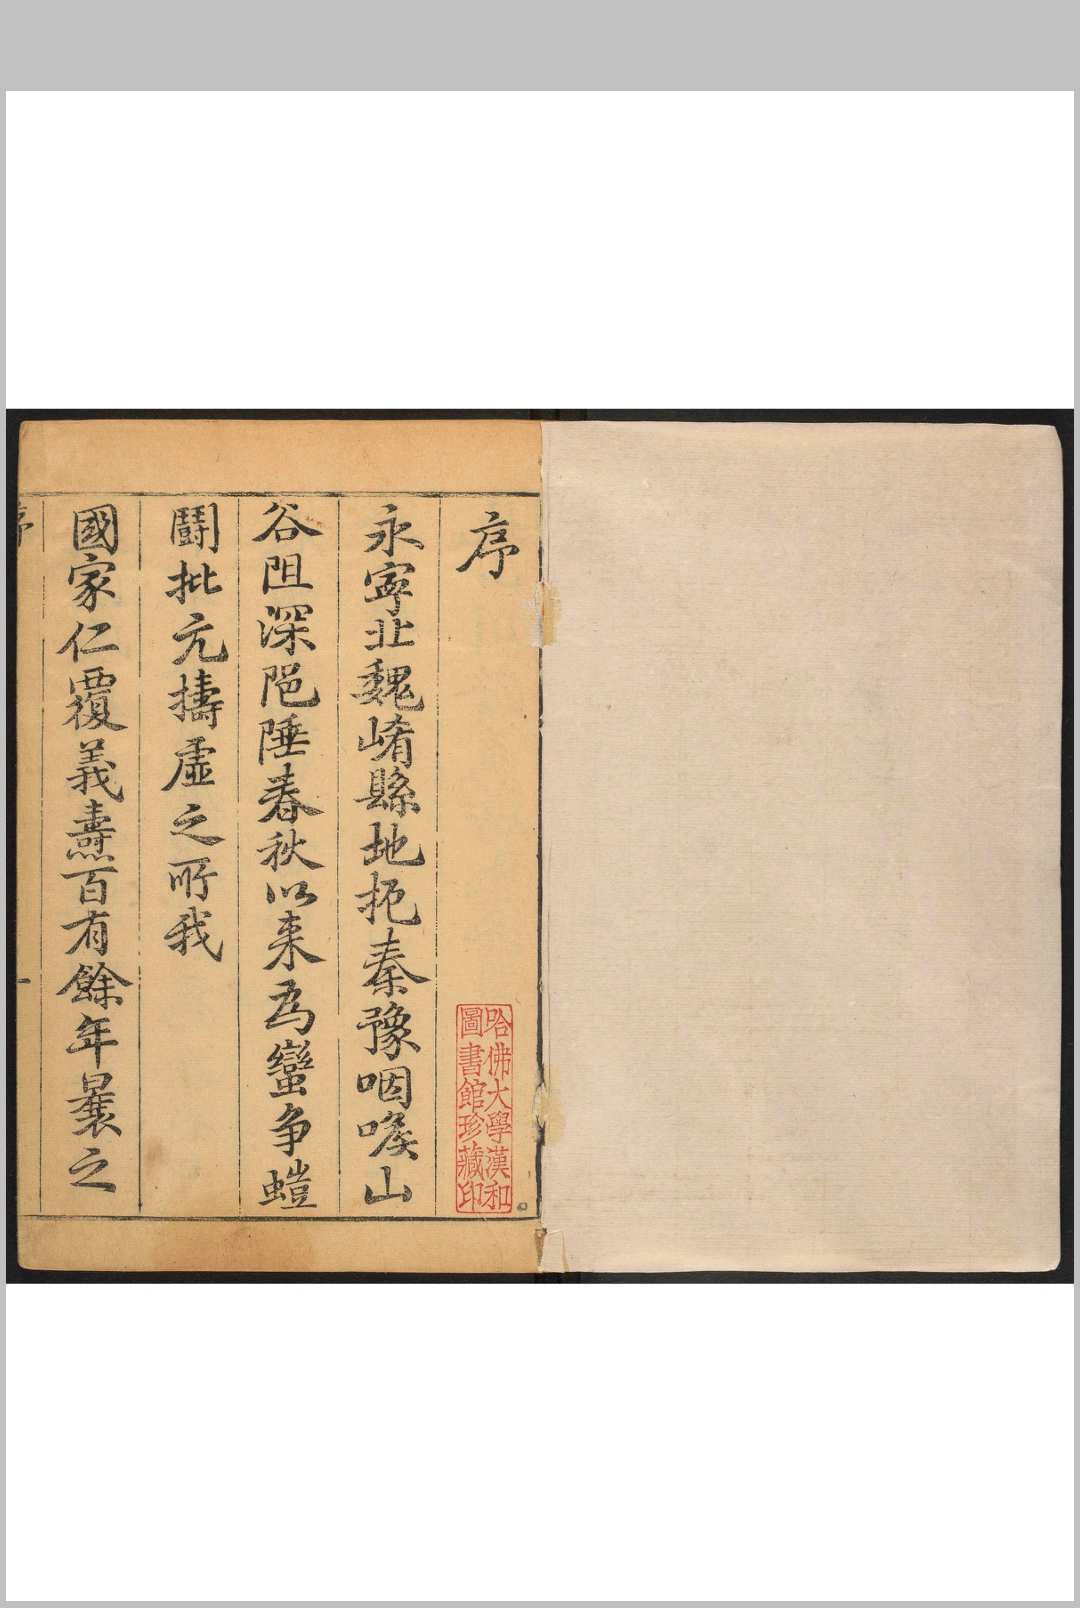 序
永寧北魏崤縣地扼秦豫咽喉山
谷阻深阸陲春秋以来為蠻争螘
鬪批亢擣虛之所我
國家仁覆義燾百有餘年曩之
序
一
哈佛大學漢和
圖書館珍藏印